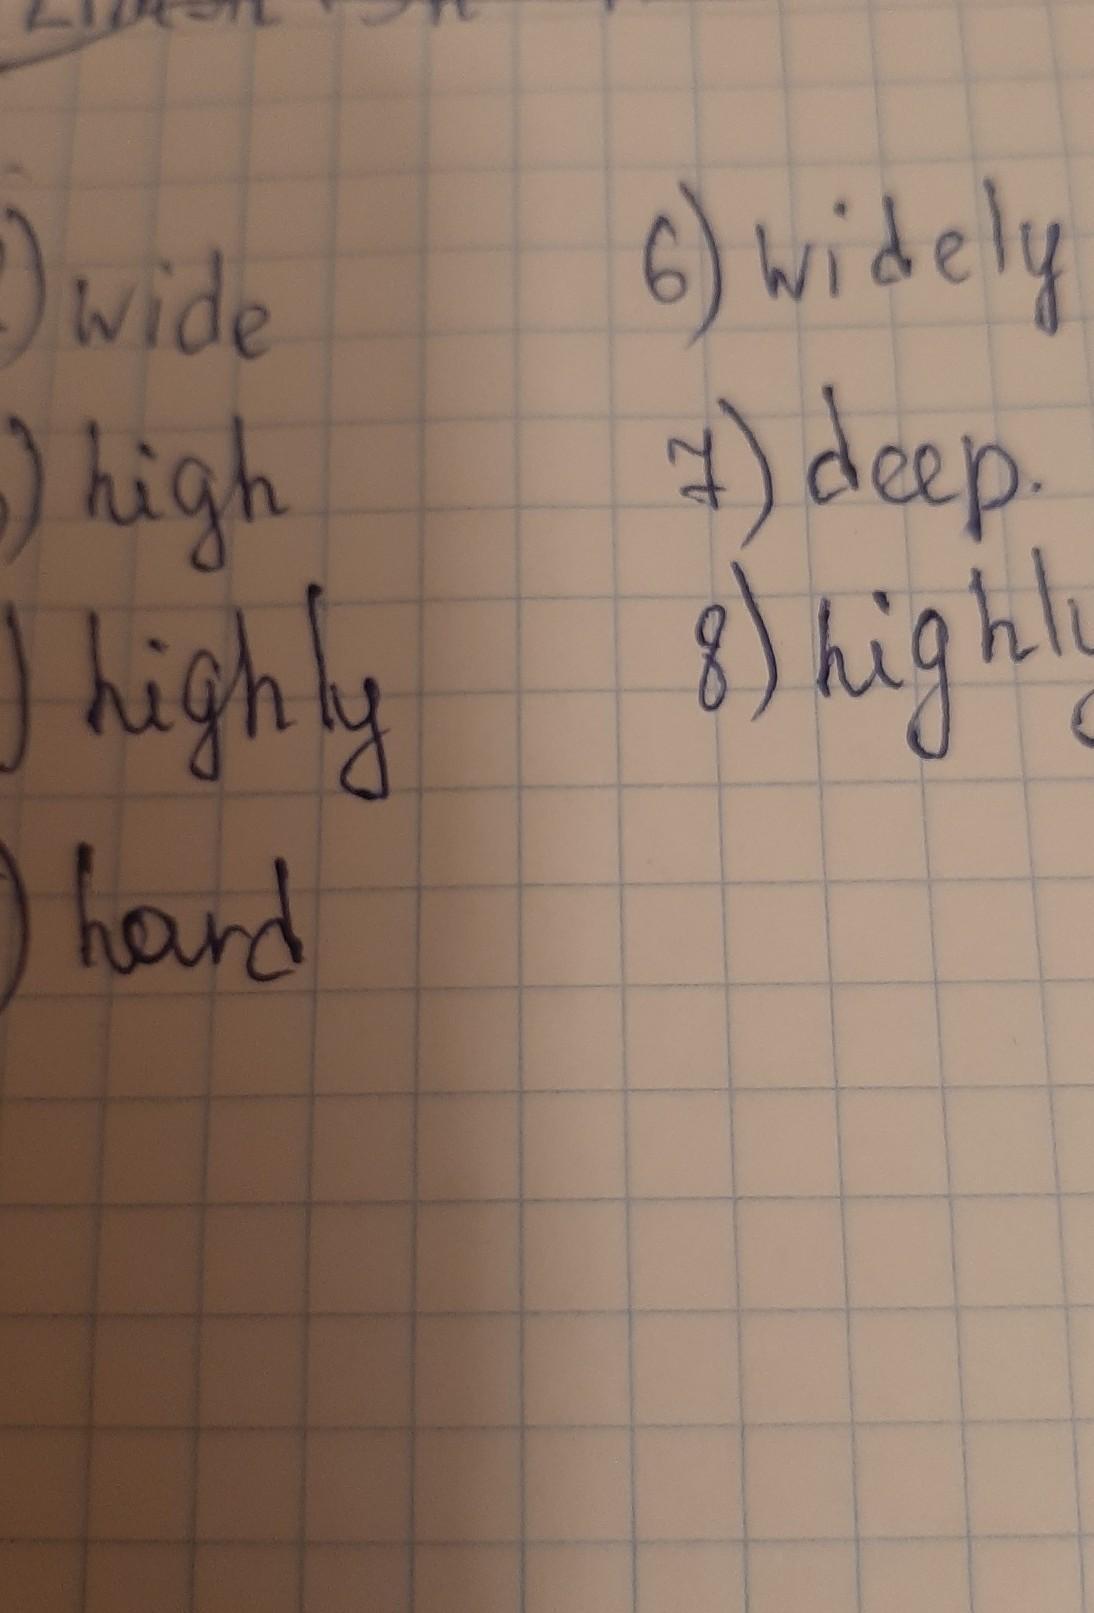 ) wide
) high
) highly
) hard
6) widely
7) deep.
8) highly